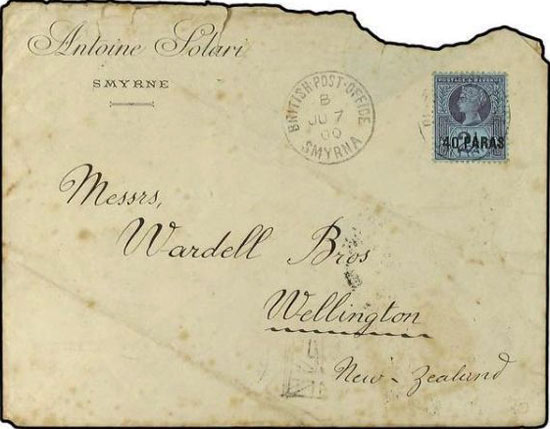 Antoine Solari
SMYRNE
BRITISH·POST·OFFICE
B
JU 7
00
SMYRNA
40 PARAS
Messrs,
Wardell Bros
Wellington
New-Zealand